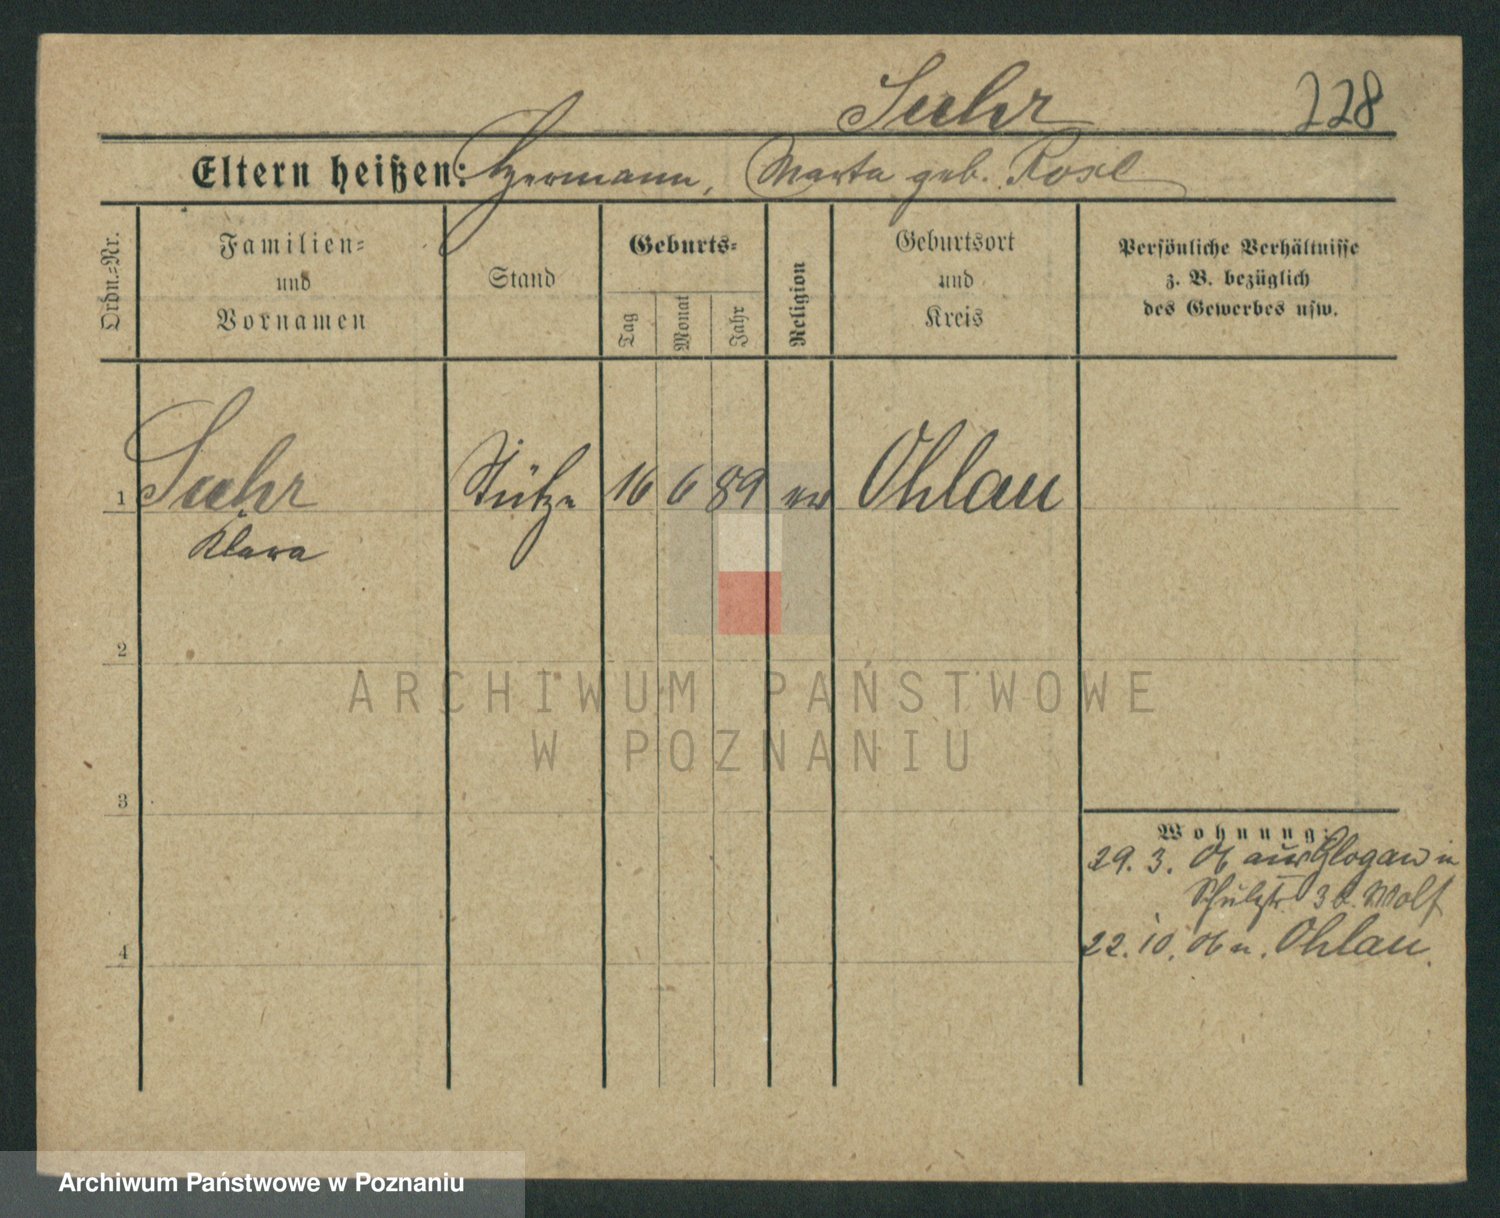 Suhr 228
Eltern heißen: Hermann, Marta geb. Rose
Ordn.-Nr.
Familien-
und
Vornamen
Stand
Geburts-
Tag
Monat
Jahr
Religion
Geburtsort
und
Kreis
Persönliche Verhältnisse
z. B. bezüglich
des Gewerbes usw.
1 Suhr Stütze 16 6 89 ev Ohlau
Klara
2
ARCHIWUM PAŃSTWOWE
W POZNANIU
3
Wohnung:
29. 3. aus Glogau in
Schulzstr 3 Wolf
4
22. 10. n. Ohlau.
Archiwum Państwowe w Poznaniu